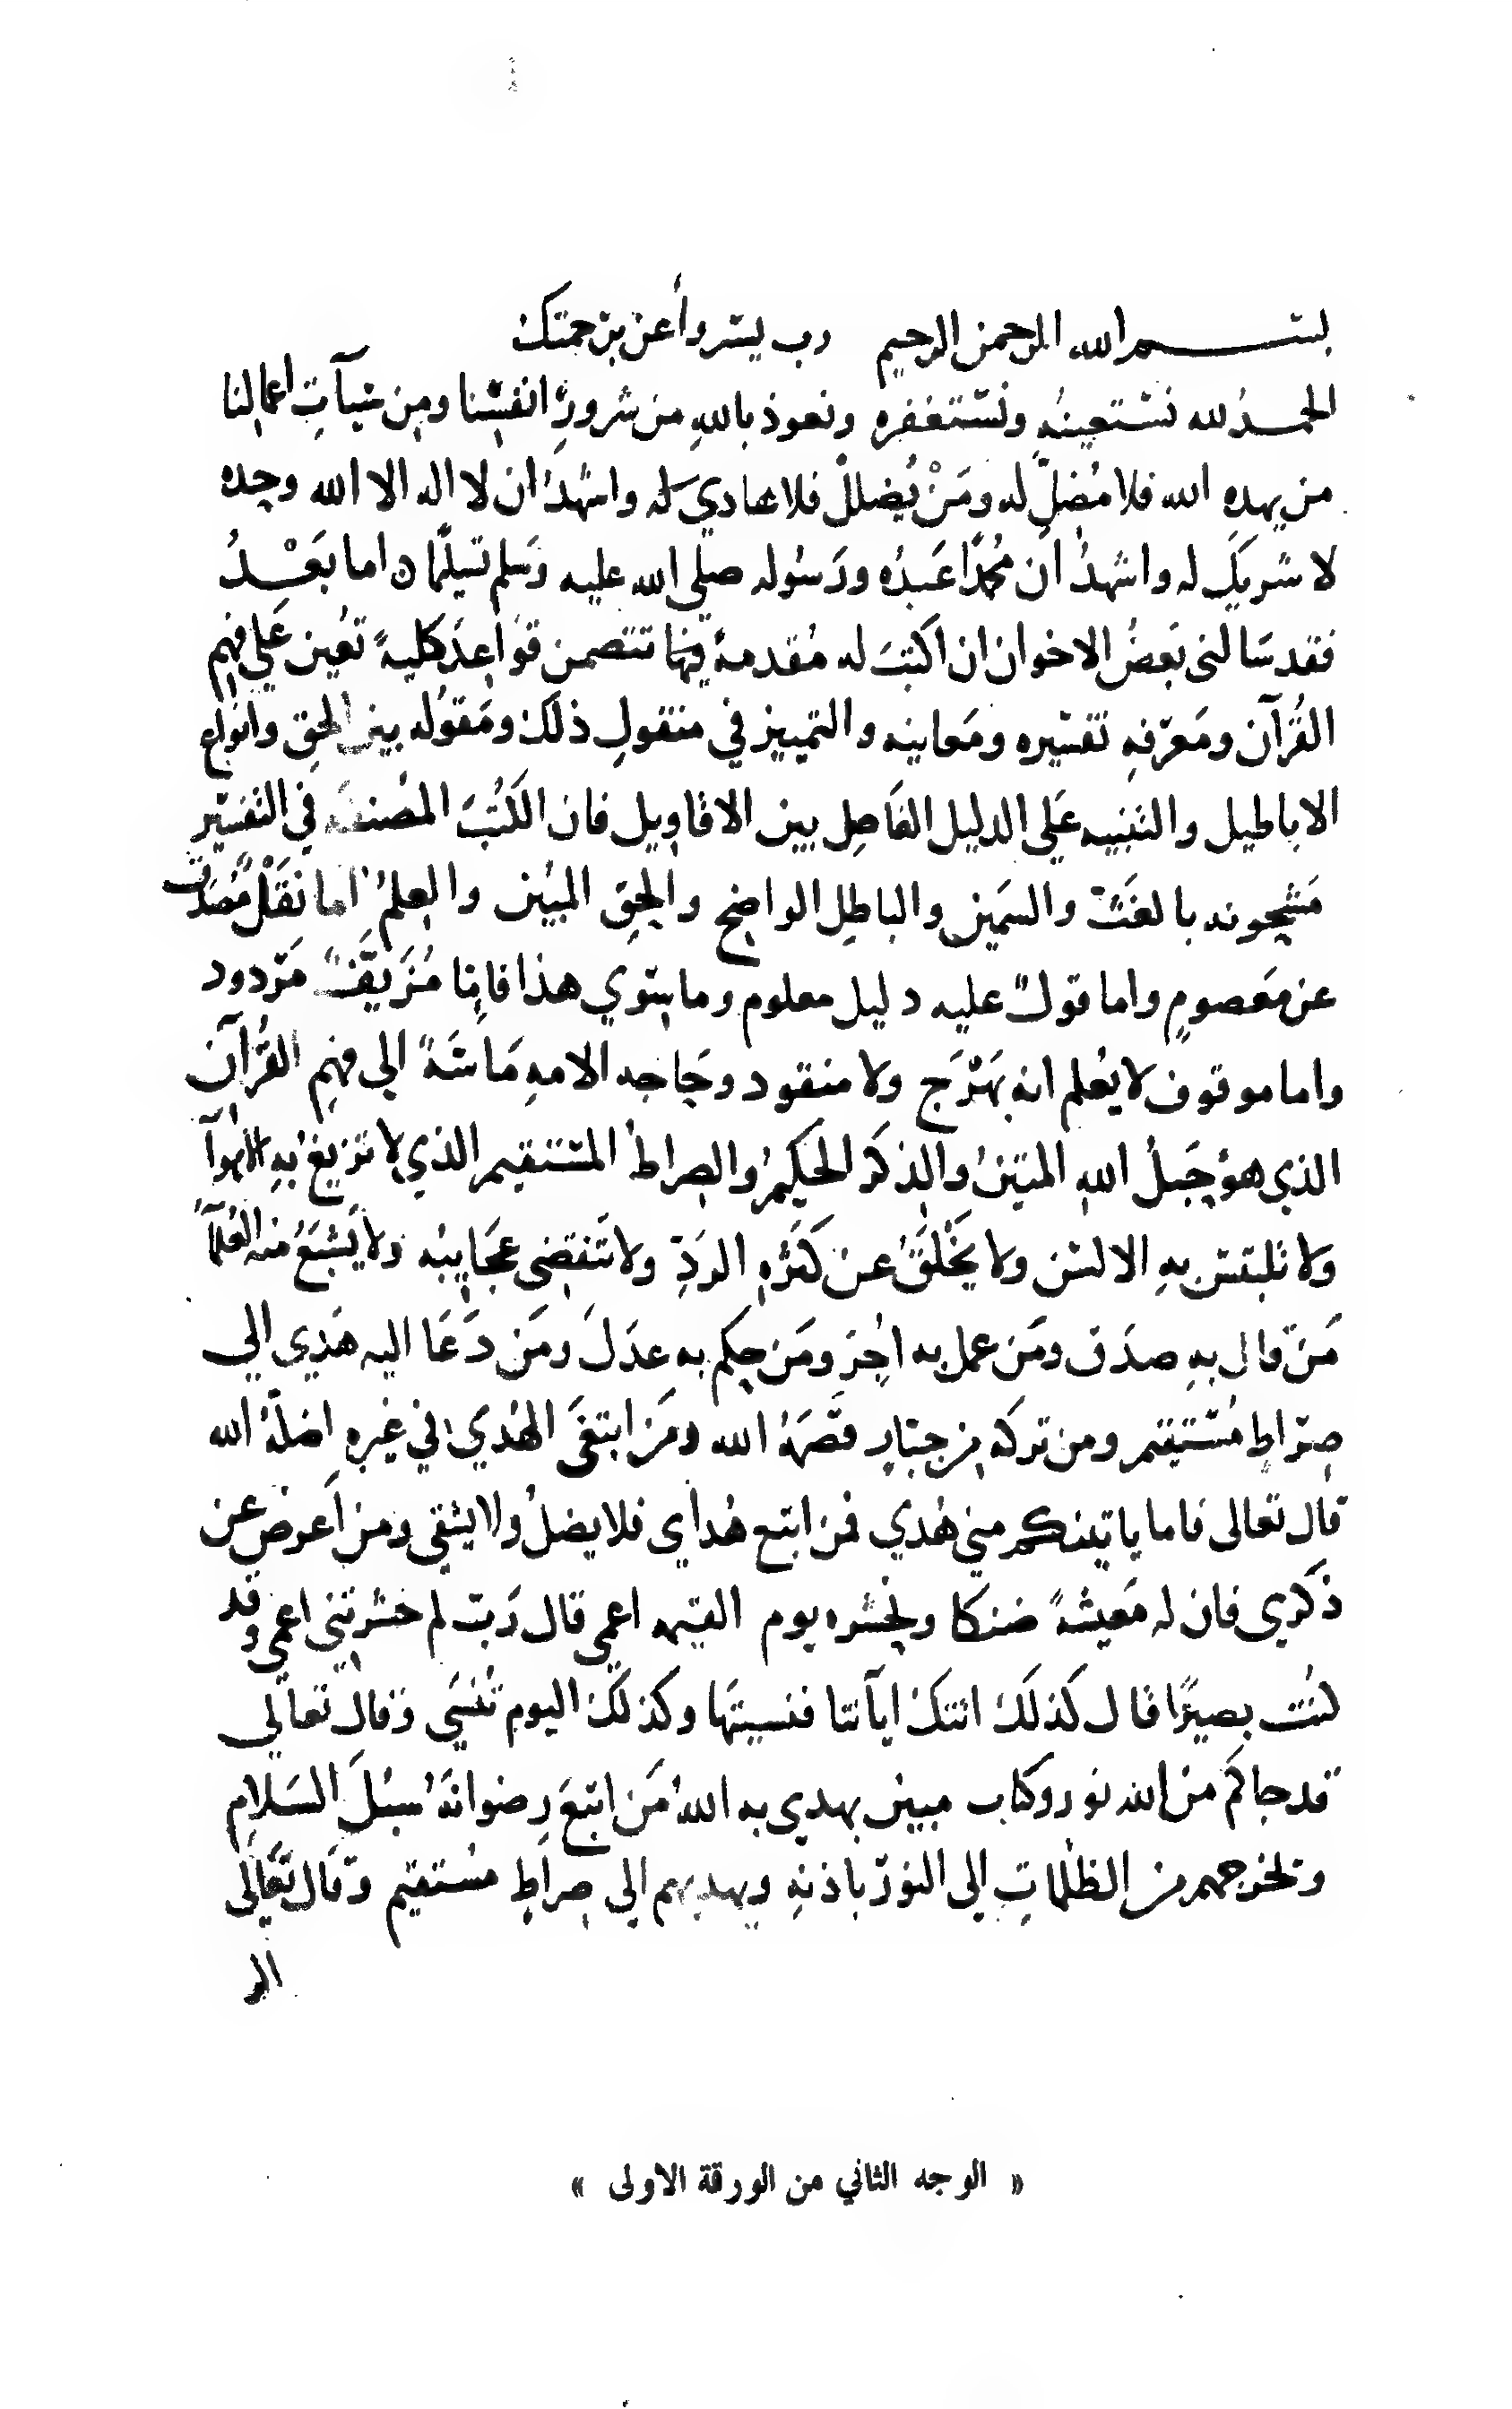 بسم الله الرحمن الرحيم رب يسر وأعن برحمتك
الحمد لله نستعينه ونستغفره ونعوذ بالله من شرور انفسنا ومن سيآت اعمالنا
من يهده الله فلا مضل له ومن يضلل فلا هادي له واشهد ان لا اله الا الله وحده
لا شريك له واشهد ان محمدا عبده ورسوله صلى الله عليه وسلم تسليما اما بعد
فقد سالني بعض الاخوان ان اكتب له مقدمة فيما تتضمن قواعد كلية تعين على فهم
القرآن ومعرفه تفسيره ومعانيه والتمييز في منقول ذلك ومعقوله بين الحق وانواع
الاباطيل والتنبيه على الدليل الفاصل بين الاقاويل فان الكتب المصنفه في التفسير
مشحونه بالغث والسمين والباطل الواضح والحق المبين والعلم اما نقل مصدق
عن معصوم واما قول عليه دليل معلوم وما سوي هذا فاما مزيف مردود
واما موقوف لا يعلم انه بهرج ولا منقود وحاجه الامه ماسة الي فهم القرآن
الذي هو حبل الله المتين والذكر الحكيم والصراط المستقيم الذي لا تزيغ به الاهوآ
ولا تلبتس به الالسن ولا يخلق عن كثره الرد ولا تنقضي عجايبه ولا يشبع منه العلمآ
من قال به صدق ومن عمل به اجر ومن حكم به عدل ومن دعا اليه هدي الي
صراط مستقيم ومن تركه من جبار قصمه الله ومن ابتغى الهدي في غيره اضله الله
قال تعالى فاما ياتينكم مني هدي فمن اتبع هداي فلا يضل ولا يشقى ومن اعرض عن
ذكري فان له معيشة ضنكا ونحشره يوم القيمه اعمى قال رب لم حشرتني اعمى وقد
كنت بصيرا قال كذلك اتتك ايآتنا فنسيتها وكذلك اليوم تنسى وقال تعالى
قد جاكم من الله نور وكتاب مبين يهدي به الله من اتبع رضوانه سبل السلام
ويخرجهم من الظلمات إلى النور باذنه ويهديهم الى صراط مستقيم وقال تعالى
الر
« الوجه الثاني من الورقة الاولى »